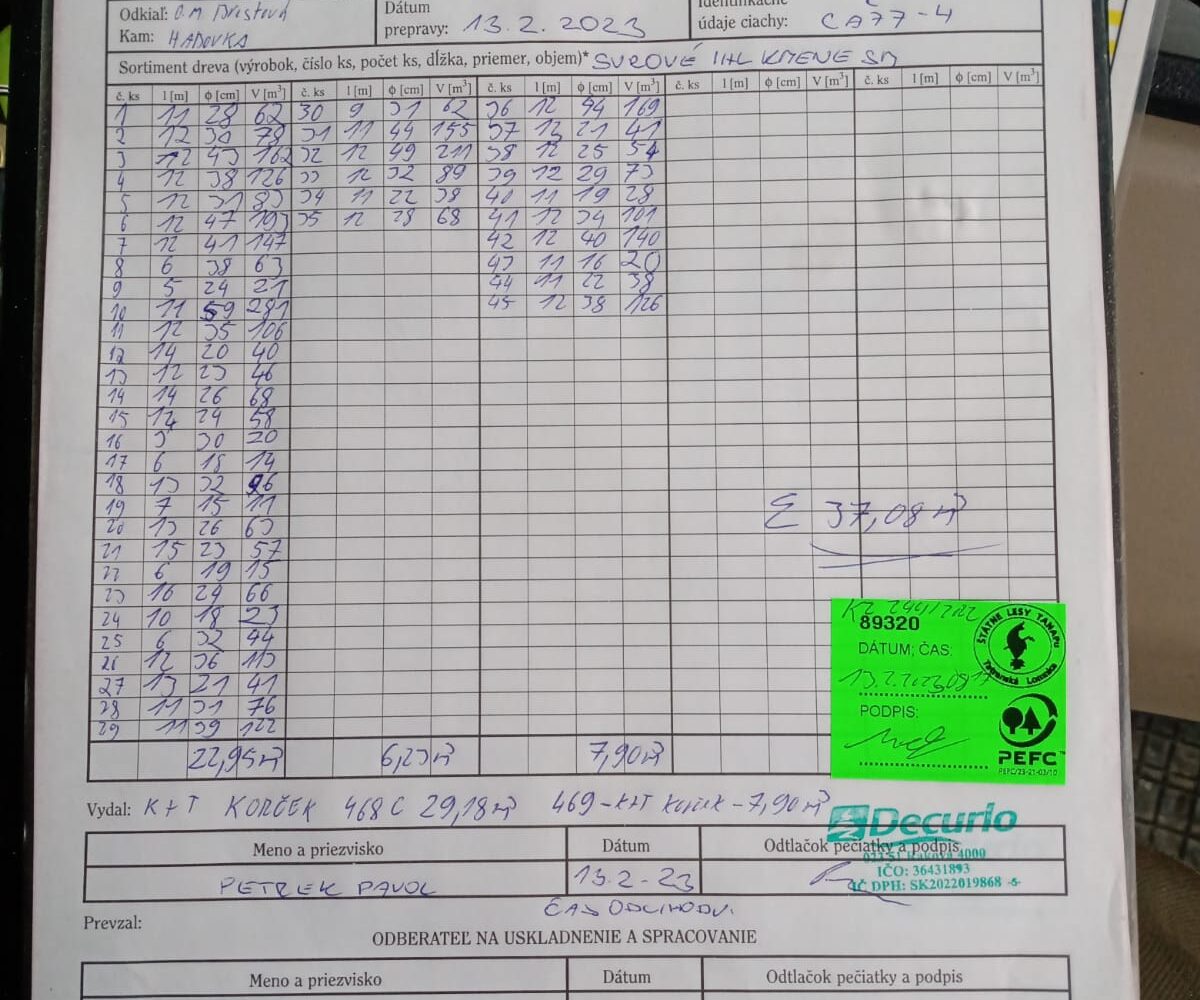 Odkiaľ: O.M. Brestová
Kam: HABOVKA
Dátum
prepravy: 13.2.2023
Identifikačné
údaje ciachy: CA77-4
Sortiment dreva (výrobok, číslo ks, počet ks, dĺžka, priemer, objem)* SUROVÉ IHL KMENE SM
č. ks l [m] ϕ [cm] V [m³] č. ks l [m] ϕ [cm] V [m³] č. ks l [m] ϕ [cm] V [m³] č. ks l [m] ϕ [cm] V [m³] č. ks l [m] ϕ [cm] V [m³]
1 11 28 62 30 9 31 62 36 12 44 169
2 12 30 78 31 11 44 155 37 13 21 41
3 12 43 162 32 12 49 211 38 12 25 54
4 12 38 126 33 12 32 89 39 12 29 73
5 12 31 83 34 11 22 38 40 11 19 28
6 12 47 193 35 12 28 68 41 12 34 101
7 12 41 147 42 12 40 140
8 6 38 63 43 11 16 20
9 5 24 21 44 11 22 38
10 11 59 281 45 12 38 126
11 12 35 106
12 14 20 40
13 12 23 46
14 14 26 68
15 14 24 58
16 3 30 20
17 6 18 14
18 13 32 96
19 7 15 11
20 13 26 63
21 15 23 57
22 6 19 15
23 16 24 66
24 10 18 23
25 6 32 44
26 12 36 113
27 13 21 41
28 11 31 76
29 11 39 122
Σ 37,08 m³
22,95 m³ 6,23 m³ 7,90 m³
89320
DÁTUM; ČAS:
13.2.2023
PODPIS:
ŠTÁTNE LESY TANAPU
Tatranská Lomnica
PEFC™
PEFC/23-21-03/10
Vydal: K+T KORČEK 468C 29,18 m³ 469-K+T Korček-7,90 m³
Decurio
023 51 Raková 4000
IČO: 36431893
IČ DPH: SK2022019868 -5-
Meno a priezvisko Dátum Odtlačok pečiatky a podpis
PETREK PAVOL 13.2-23
ČAS ODCHODU.
Prevzal:
ODBERATEĽ NA USKLADNENIE A SPRACOVANIE
Meno a priezvisko Dátum Odtlačok pečiatky a podpis